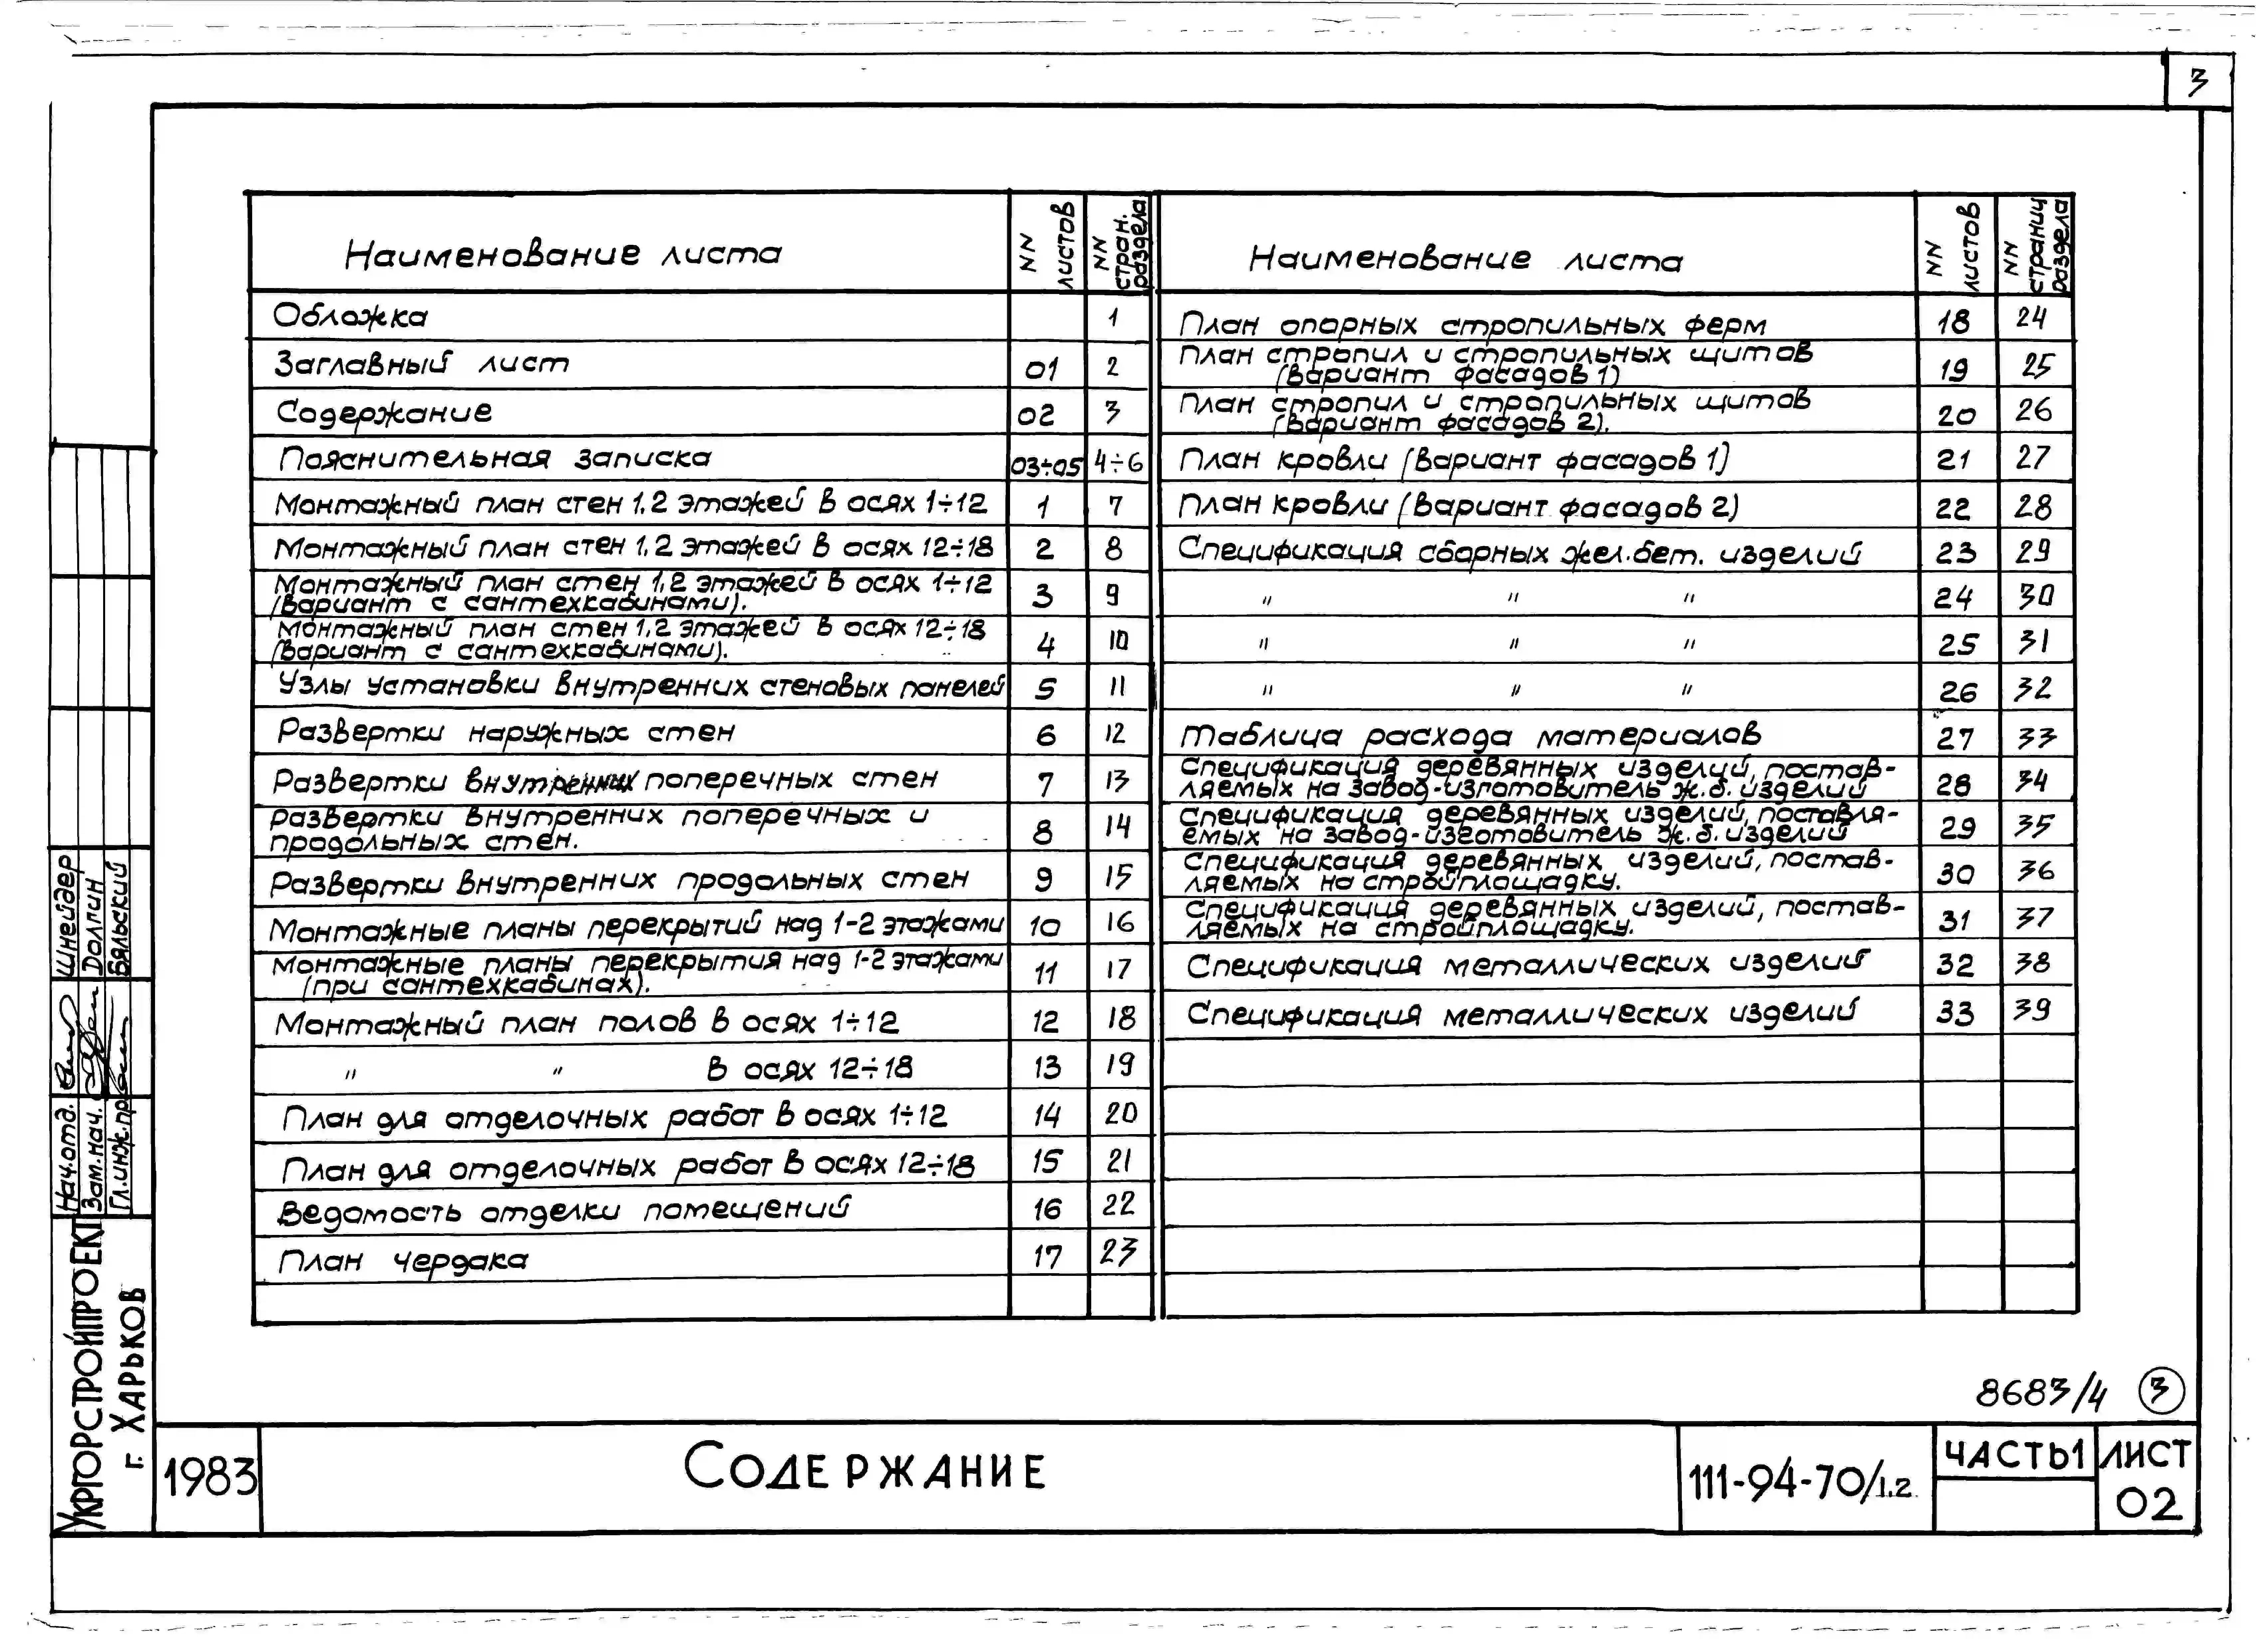 3
Наименование листа
NN листов
NN стран. раздела
Обложка 1
Заглавный лист 01 2
Содержание 02 3
Пояснительная записка 03÷05 4÷6
Монтажный план стен 1,2 этажей в осях 1÷12 1 7
Монтажный план стен 1,2 этажей в осях 12÷18 2 8
Монтажный план стен 1,2 этажей в осях 1÷12
(вариант с сантехкабинами). 3 9
Монтажный план стен 1,2 этажей в осях 12÷18
(вариант с сантехкабинами). 4 10
Узлы установки внутренних стеновых панелей 5 11
Развертки наружных стен 6 12
Развертки внутренних поперечных стен 7 13
Развертки внутренних поперечных и
продольных стен. 8 14
Развертки внутренних продольных стен 9 15
Монтажные планы перекрытий над 1-2 этажами 10 16
Монтажные планы перекрытия над 1-2 этажами
(при сантехкабинах). 11 17
Монтажный план полов в осях 1÷12 12 18
" " в осях 12÷18 13 19
План для отделочных работ в осях 1÷12 14 20
План для отделочных работ в осях 12÷18 15 21
Ведомость отделки помещений 16 22
План чердака 17 23
Наименование листа
NN листов
NN страниц раздела
План опорных стропильных ферм 18 24
План стропил и стропильных щитов
(вариант фасадов 1) 19 25
План стропил и стропильных щитов
(вариант фасадов 2). 20 26
План кровли (вариант фасадов 1) 21 27
План кровли (вариант фасадов 2) 22 28
Спецификация сборных жел.бет. изделий 23 29
" " " 24 30
" " " 25 31
" " " 26 32
Таблица расхода материалов 27 33
Спецификация деревянных изделий, постав-
ляемых на завод-изготовитель ж.б. изделий 28 34
Спецификация деревянных изделий, поставля-
емых на завод-изготовитель ж.б. изделий 29 35
Спецификация деревянных изделий, постав-
ляемых на стройплощадку. 30 36
Спецификация деревянных изделий, постав-
ляемых на стройплощадку. 31 37
Спецификация металлических изделий 32 38
Спецификация металлических изделий 33 39
Шнейдер
Долгин
Бяльский
Нач.отд.
Зам.нач.
Гл.инж.пр
Укргорстройпроект
г. Харьков
8683/4 3
1983
Содержание
111-94-70/1.2
Часть1
Лист
02